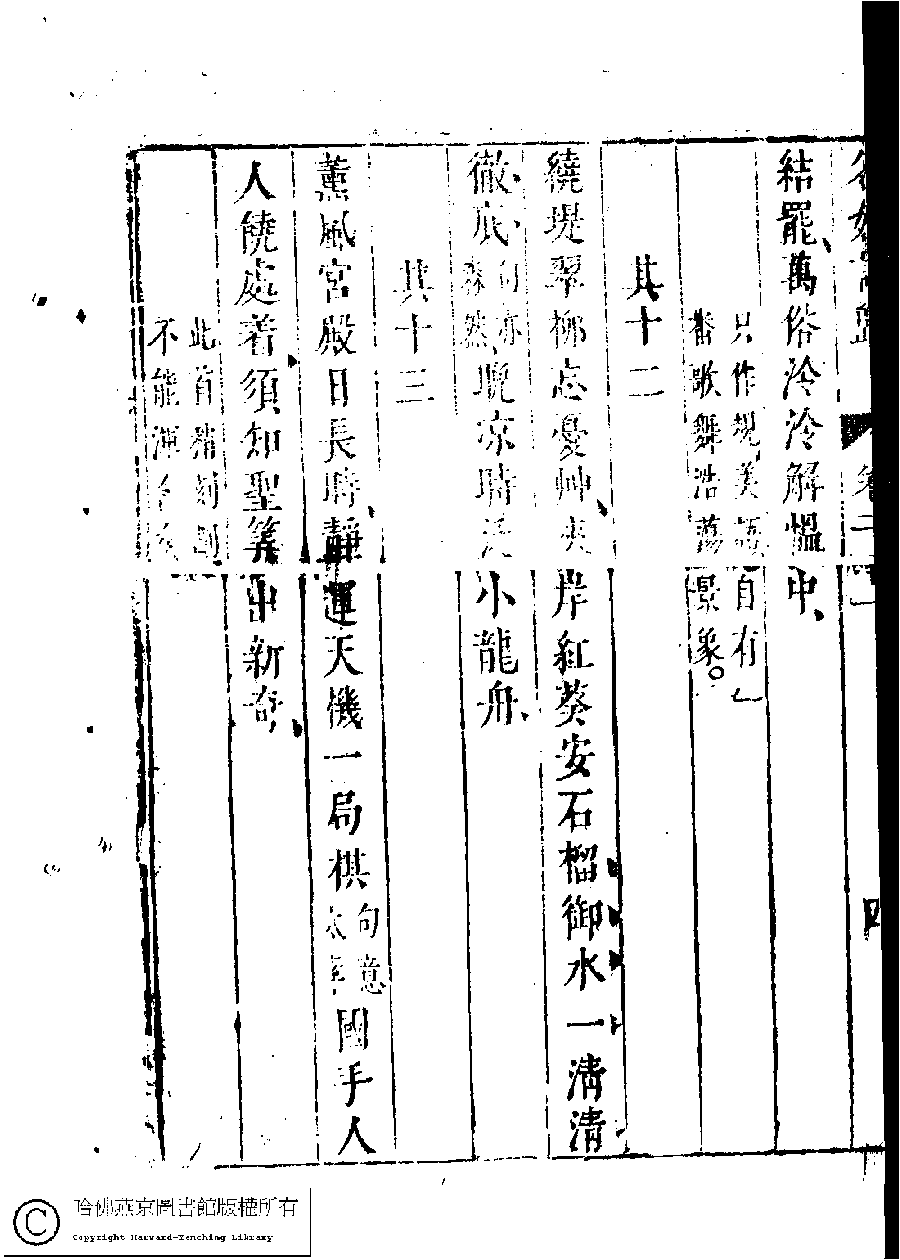 結罷萬俗泠泠解慍中
只作規美語自有
番歌舞浩蕩景象
其十二
繞堤翠柳忘憂艸夾岸紅葵安石榴御水一清清
徹底句亦森然晚凉時泛小龍舟
其十三
薰風宮殿日長時靜運天機一局棋句意國手人
人饒處着須知聖筭出新奇
此首
不能
卷二
四
哈佛燕京圖書館版權所有
Copyright Harvard-Yenching Library